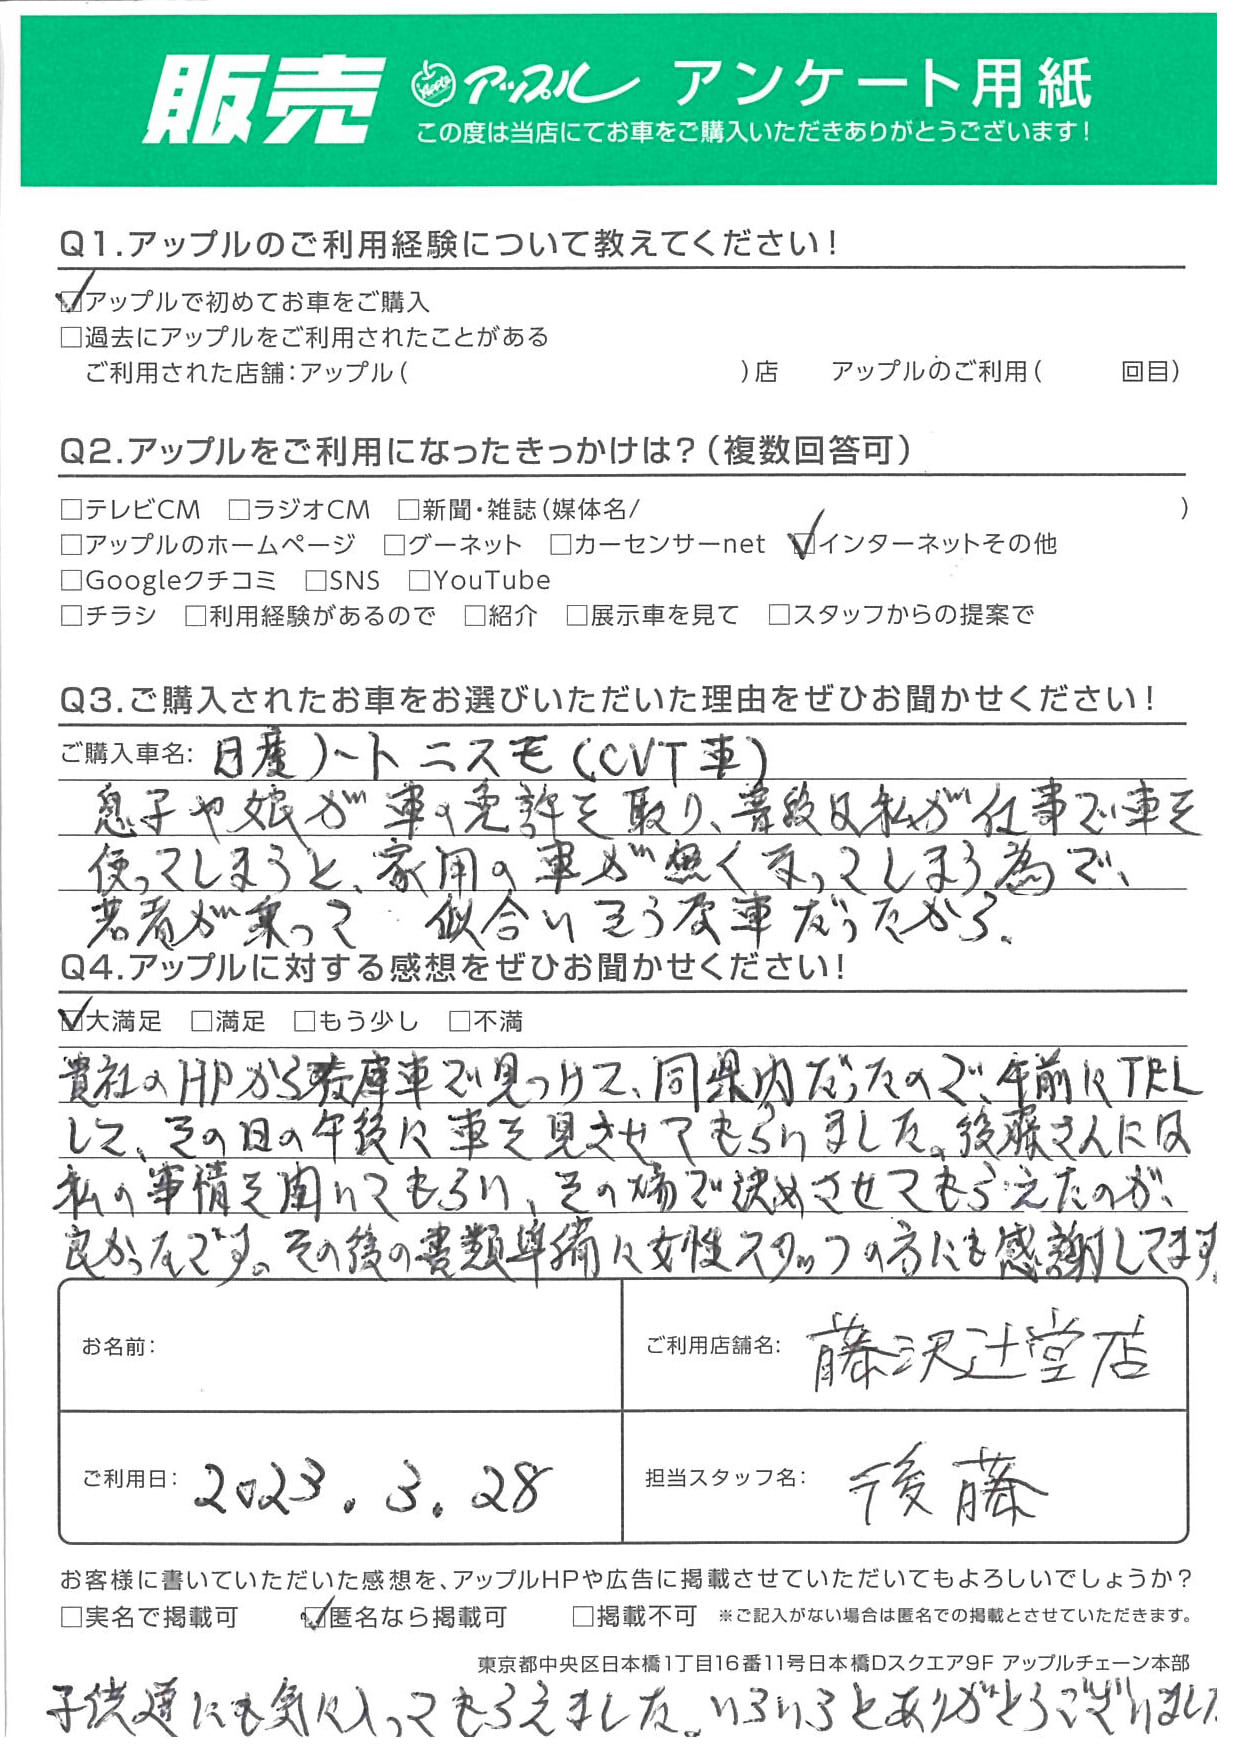 販売 アップル アンケート用紙
この度は当店にてお車をご購入いただきありがとうございます!
Q1.アップルのご利用経験について教えてください!
☑アップルで初めてお車をご購入
□過去にアップルをご利用されたことがある
ご利用された店舗:アップル( )店 アップルのご利用( 回目)
Q2.アップルをご利用になったきっかけは?(複数回答可)
□テレビCM □ラジオCM □新聞・雑誌(媒体名/ )
□アップルのホームページ □グーネット □カーセンサーnet ☑インターネットその他
□Googleクチコミ □SNS □YouTube
□チラシ □利用経験があるので □紹介 □展示車を見て □スタッフからの提案で
Q3.ご購入されたお車をお選びいただいた理由をぜひお聞かせください!
ご購入車名: 日産ノート ニスモ(CVT車)
息子や娘が車の免許を取り、普段は私が仕事で車を
使ってしまうと、家用の車が無くなってしまう為で、
若者が乗って 似合いそうな車だったから.
Q4.アップルに対する感想をぜひお聞かせください!
☑大満足 □満足 □もう少し □不満
貴社のHPから在庫車で見つけて、同県内だったので、午前にTEL
して、その日の午後に車を見させてもらいました。後藤さんには
私の事情を聞いてもらい、その場で決めさせてもらえたのが、
良かったです。その後の書類準備に女性スタッフの方にも感謝してます。
お名前: ご利用店舗名: 藤沢辻堂店
ご利用日: 2023.3.28 担当スタッフ名: 後藤
お客様に書いていただいた感想を、アップルHPや広告に掲載させていただいてもよろしいでしょうか?
□実名で掲載可 ☑匿名なら掲載可 □掲載不可 ※ご記入がない場合は匿名での掲載とさせていただきます。
東京都中央区日本橋1丁目16番11号日本橋Dスクエア9F アップルチェーン本部
子供達にも気に入ってもらえました。いろいろとありがとうございました